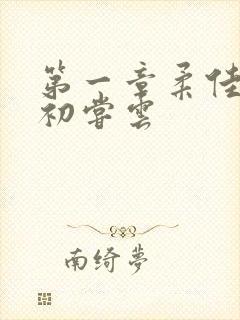 第一章柔佳
初尝云
南绮梦